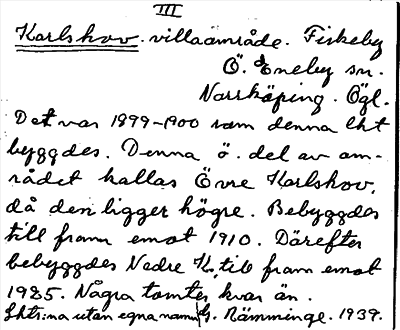 III
Karlshov. villaområde. Fiskeby
Ö. Eneby sn.
Norrköping. Ögl.
Det var 1899-1900 som denna lht
byggdes. Denna ö. del av om-
rådet kallas Övre Karlshov,
då den ligger högre. Bebyggdes
till fram emot 1910. Därefter
bebyggdes Nedre K. till fram emot
1925. Några tomter kvar än.
Lhtr:na utan egna namn G. Rämminge. 1939.